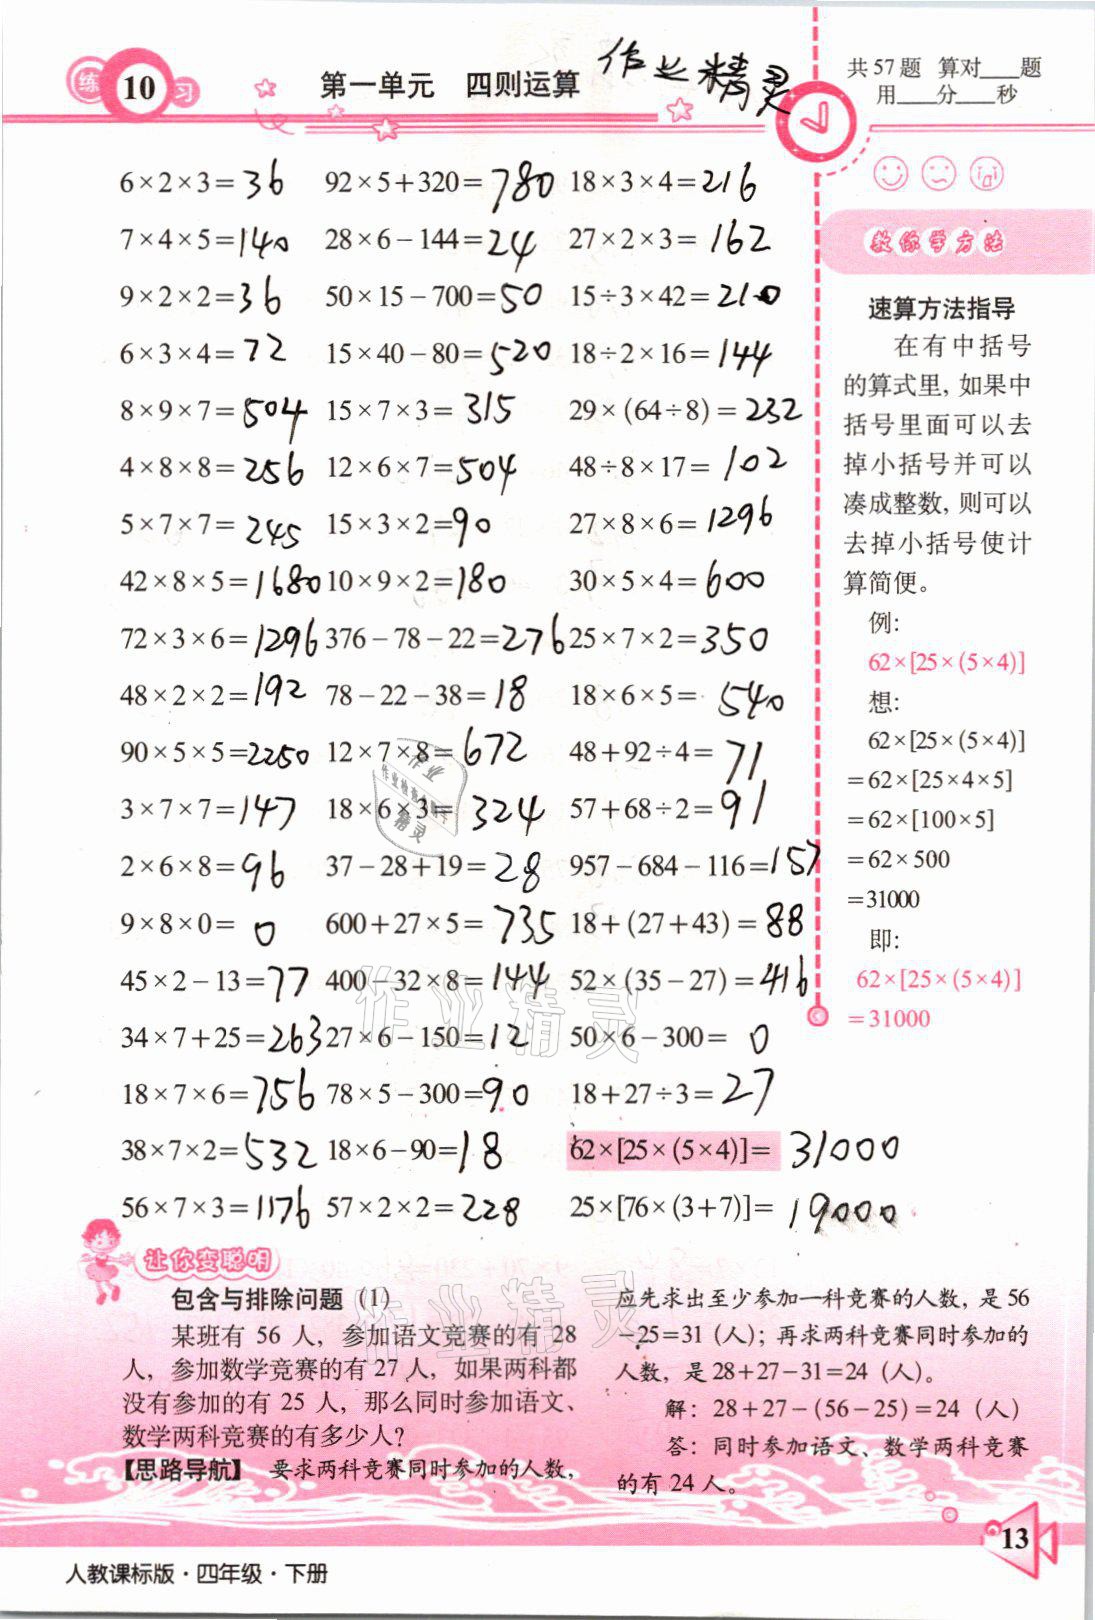 练 10 习
第一单元 四则运算 作业精灵
共57题 算对___题
用___分___秒
6×2×3=36 92×5+320=780 18×3×4=216
7×4×5=140 28×6-144=24 27×2×3=162
9×2×2=36 50×15-700=50 15÷3×42=210
6×3×4=72 15×40-80=520 18÷2×16=144
8×9×7=504 15×7×3=315 29×(64÷8)=232
4×8×8=256 12×6×7=504 48÷8×17=102
5×7×7=245 15×3×2=90 27×8×6=1296
42×8×5=1680 10×9×2=180 30×5×4=600
72×3×6=1296 376-78-22=276 25×7×2=350
48×2×2=192 78-22-38=18 18×6×5=540
90×5×5=2250 12×7×8=672 48+92÷4=71
3×7×7=147 18×6×3=324 57+68÷2=91
2×6×8=96 37-28+19=28 957-684-116=157
9×8×0=0 600+27×5=735 18+(27+43)=88
45×2-13=77 400-32×8=144 52×(35-27)=416
34×7+25=263 27×6-150=12 50×6-300=0
18×7×6=756 78×5-300=90 18+27÷3=27
38×7×2=532 18×6-90=18 62×[25×(5×4)]=31000
56×7×3=1176 57×2×2=228 25×[76×(3+7)]=19000
教你学方法
速算方法指导
在有中括号
的算式里,如果中
括号里面可以去
掉小括号并可以
凑成整数,则可以
去掉小括号使计
算简便。
例:
62×[25×(5×4)]
想:
62×[25×(5×4)]
=62×[25×4×5]
=62×[100×5]
=62×500
=31000
即:
62×[25×(5×4)]
=31000
让你变聪明
包含与排除问题(1)
某班有56人,参加语文竞赛的有28
人,参加数学竞赛的有27人,如果两科都
没有参加的有25人,那么同时参加语文、
数学两科竞赛的有多少人?
【思路导航】 要求两科竞赛同时参加的人数,
应先求出至少参加一科竞赛的人数,是56
-25=31(人);再求两科竞赛同时参加的
人数,是28+27-31=24(人)。
解:28+27-(56-25)=24(人)
答:同时参加语文、数学两科竞赛
的有24人。
作业精灵
作业精灵
13
人教课标版·四年级·下册